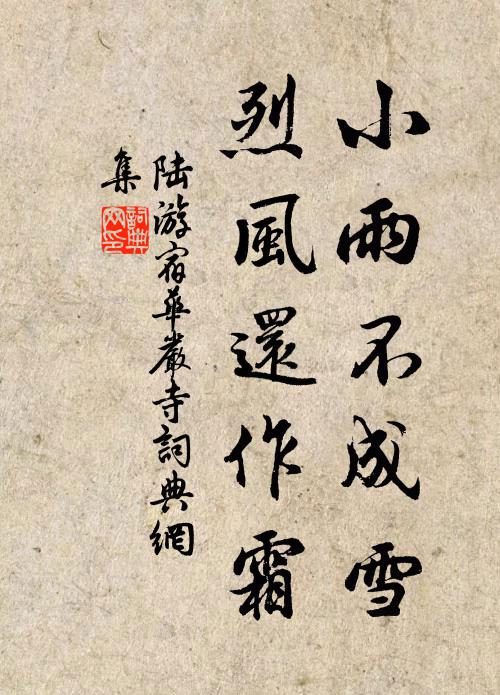 小雨不成雪
烈風還作霜
陸游宿華嚴寺詞典網
集
詞典
网印